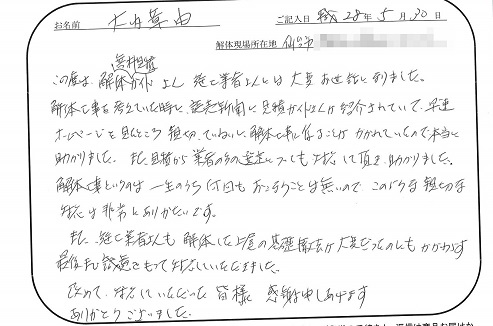 お名前 ご記入日 平成28年5月30日
解体現場所在地 仙台市
無料見積
この度は、解体ガイドさん 施工業者さんには大変お世話になりました。
解体工事を考えていた時に 読売新聞に見積ガイドさんが紹介されていて、早速
ホームページを見たところ 親切、ていねいに解体工事に係ることが かかれていたので本当に
助かりました。また見積から業者の方の選定についても対応して頂き、助かりました。
解体工事というのは 一生のうち何回もおこなうことは無いので このような親切な
対応は非常にありがたいです。
また、施工業者さんも 解体した上屋の基礎撤去が大変だったのにもかかわらず
最後まで誠意をもって対応していただきました。
改めて、対応していただいた 皆様 感謝申しあげます
ありがとうございました。